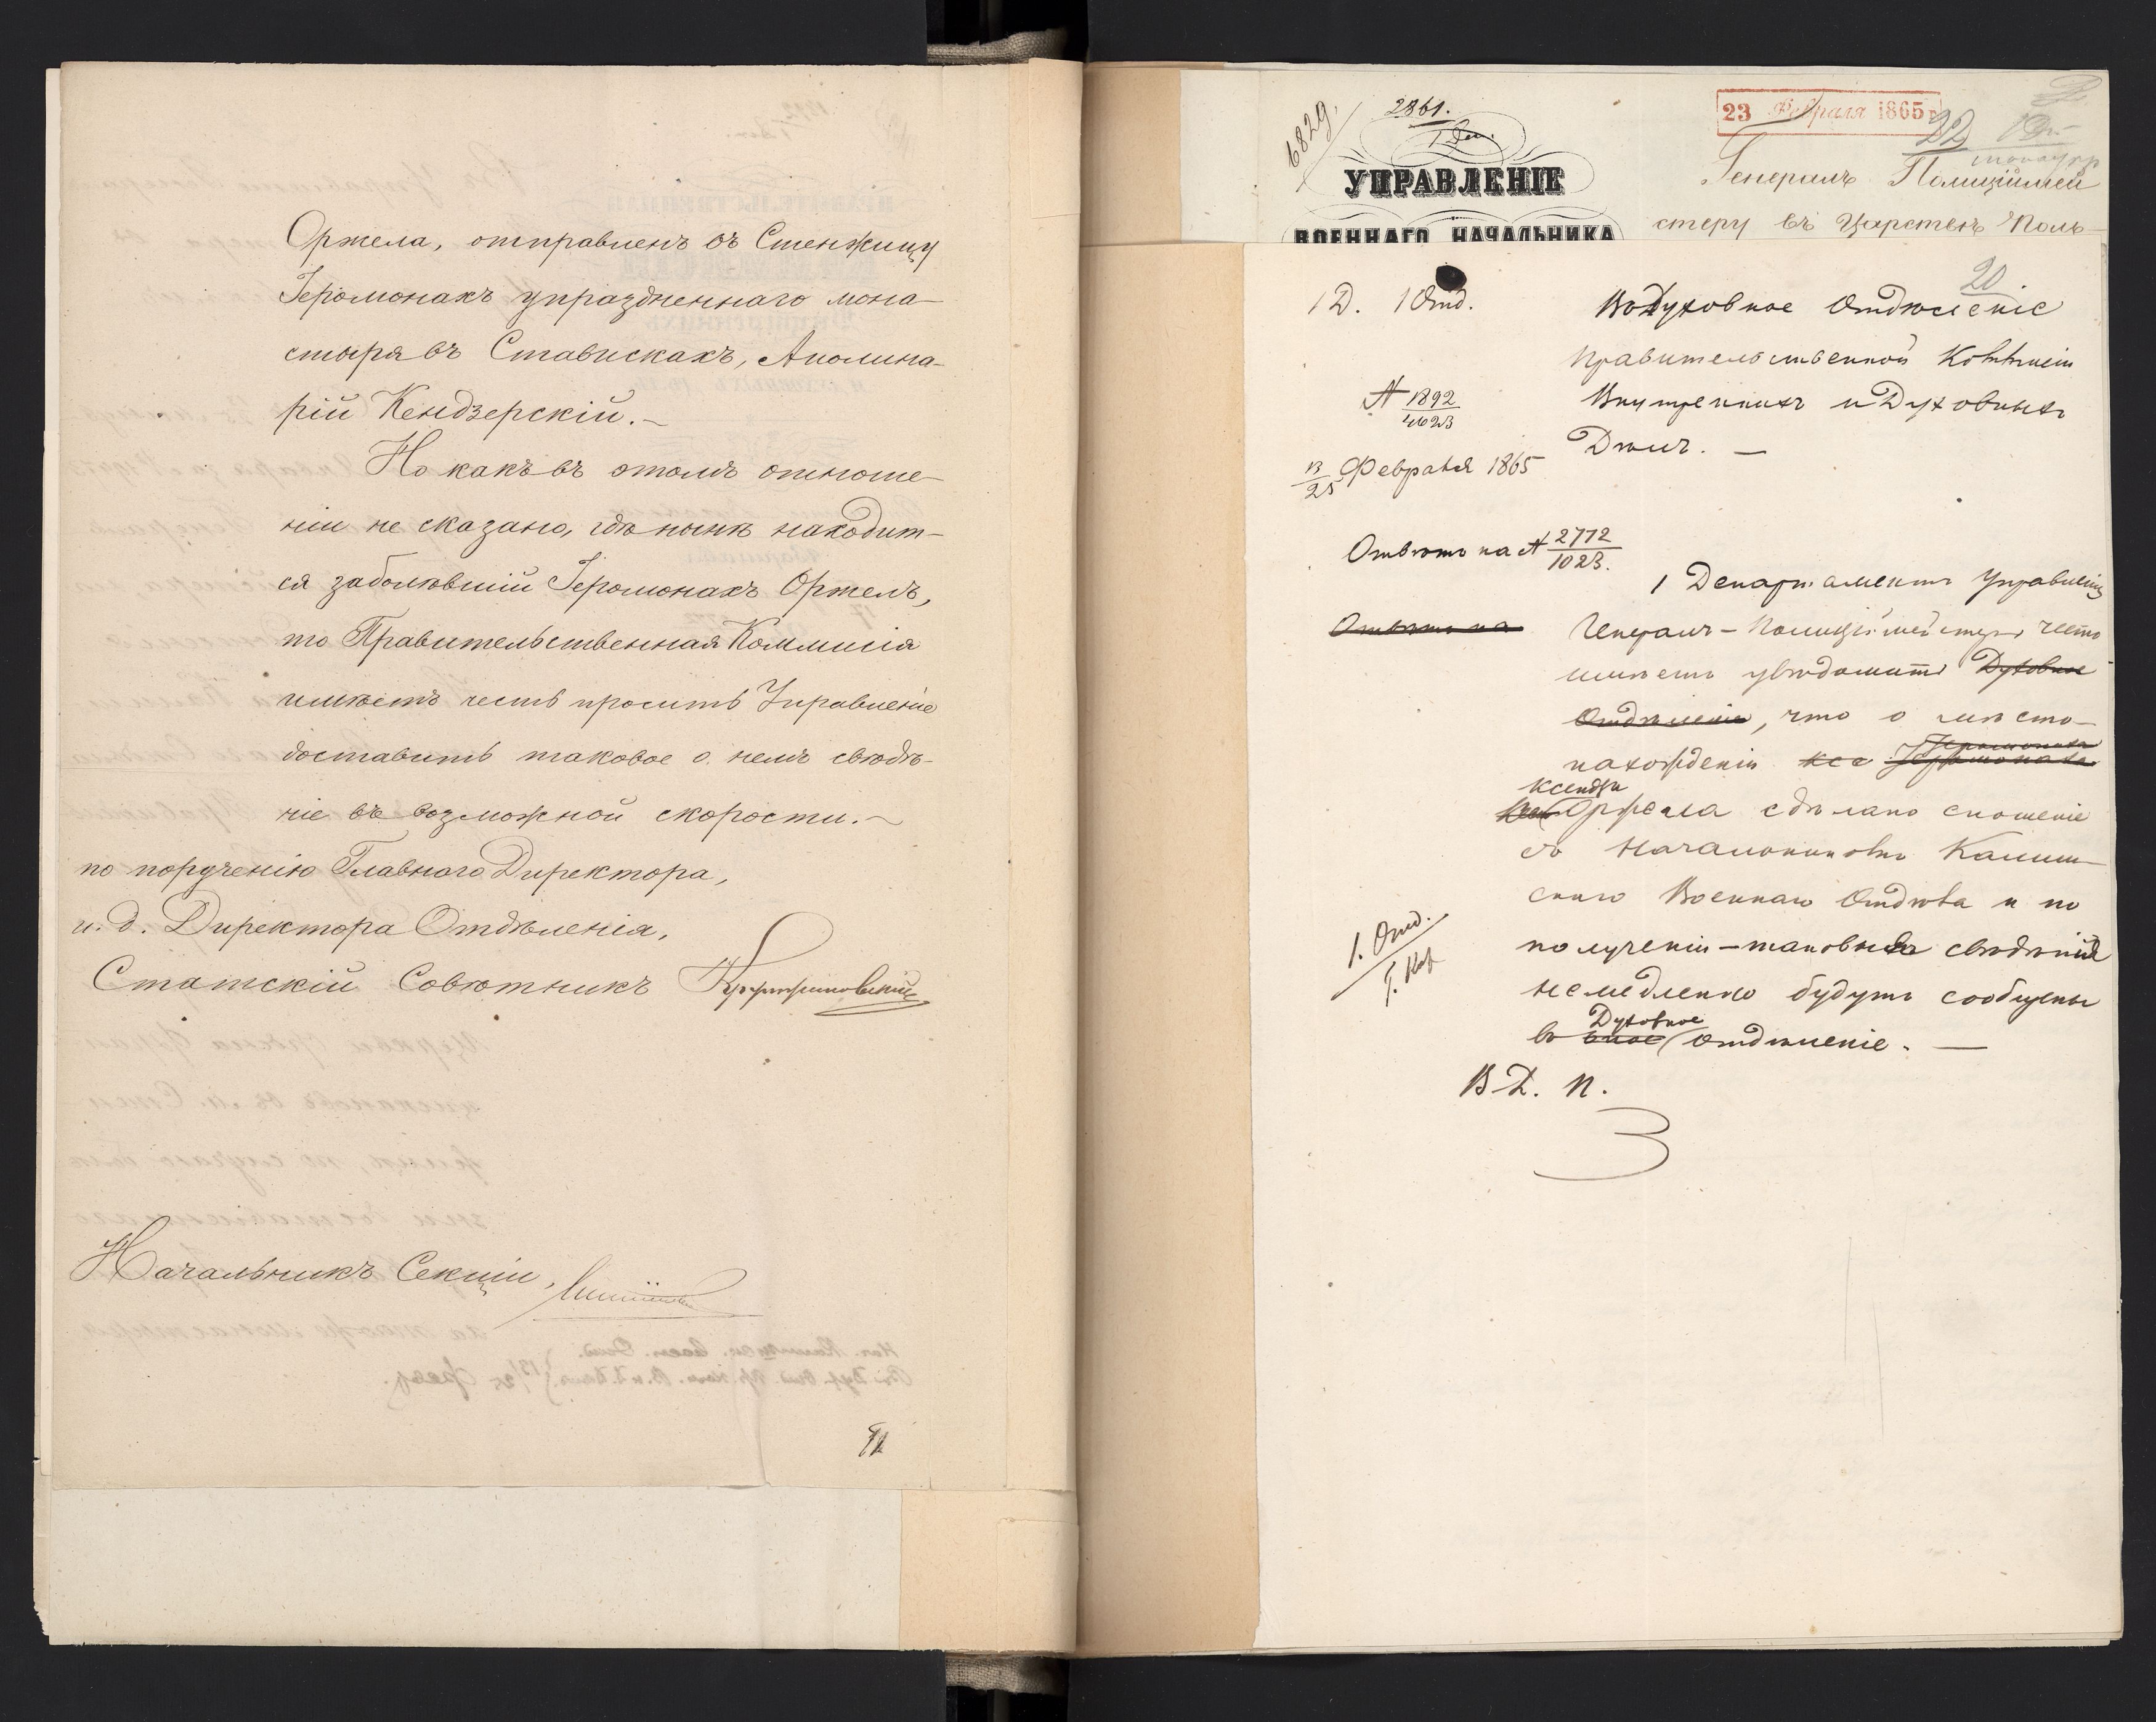 Оржела, отправленъ въ Стенжицу
Іеромонахъ упраздненнаго мона-
стыря въ Ставискахъ, Аполина-
рій Кендзерскій.-
Но какъ въ этомъ отноше-
ніи не сказано, гдѣ нынѣ находит-
ся заболѣвшій Іеромонахъ Оржелъ,
то Правительственная Коммисія
имѣетъ честь просить Управленіе
доставить таковое о немъ свѣдѣ-
ніе въ возможной скорости.-
по порученію Главнаго Директора,
и. д. Директора Отдѣленія,
Статскій Совѣтникъ
Начальникъ Секціи,
6829.
2861.
1 Деп.
УПРАВЛЕНІЕ
ВОЕННАГО НАЧАЛЬНИКА
23 Февраля 1865 г.
22
Генералъ Полиціймей
стеру въ Царствѣ Поль-
20
1 Д. 1 Отд.
№ 1892
4623
13
25 Февраля 1865
Отвѣтъ на № 2772
1023.
Отвѣтъ на
Въ Духовное Отдѣленіе
Правительственной Коммисіи
Внутреннихъ и Духовныхъ
Дѣлъ. —
1 Департаментъ Управленія
Генералъ-Полиціймейстера честь
имѣетъ увѣдомить Духовное
Отдѣленіе, что о мѣсто-
нахожденіи ксе Іеромонаха
Іеромонаха
ксендза
Оржела сдѣлано сношеніе
съ Начальникомъ Калиш-
скаго Военнаго Отдѣла и по
полученіи-таковыя свѣдѣнія
немедленно будутъ сообщены
Духовное
въ оное Отдѣленіе. —
1. Отд.
В. Д. П.